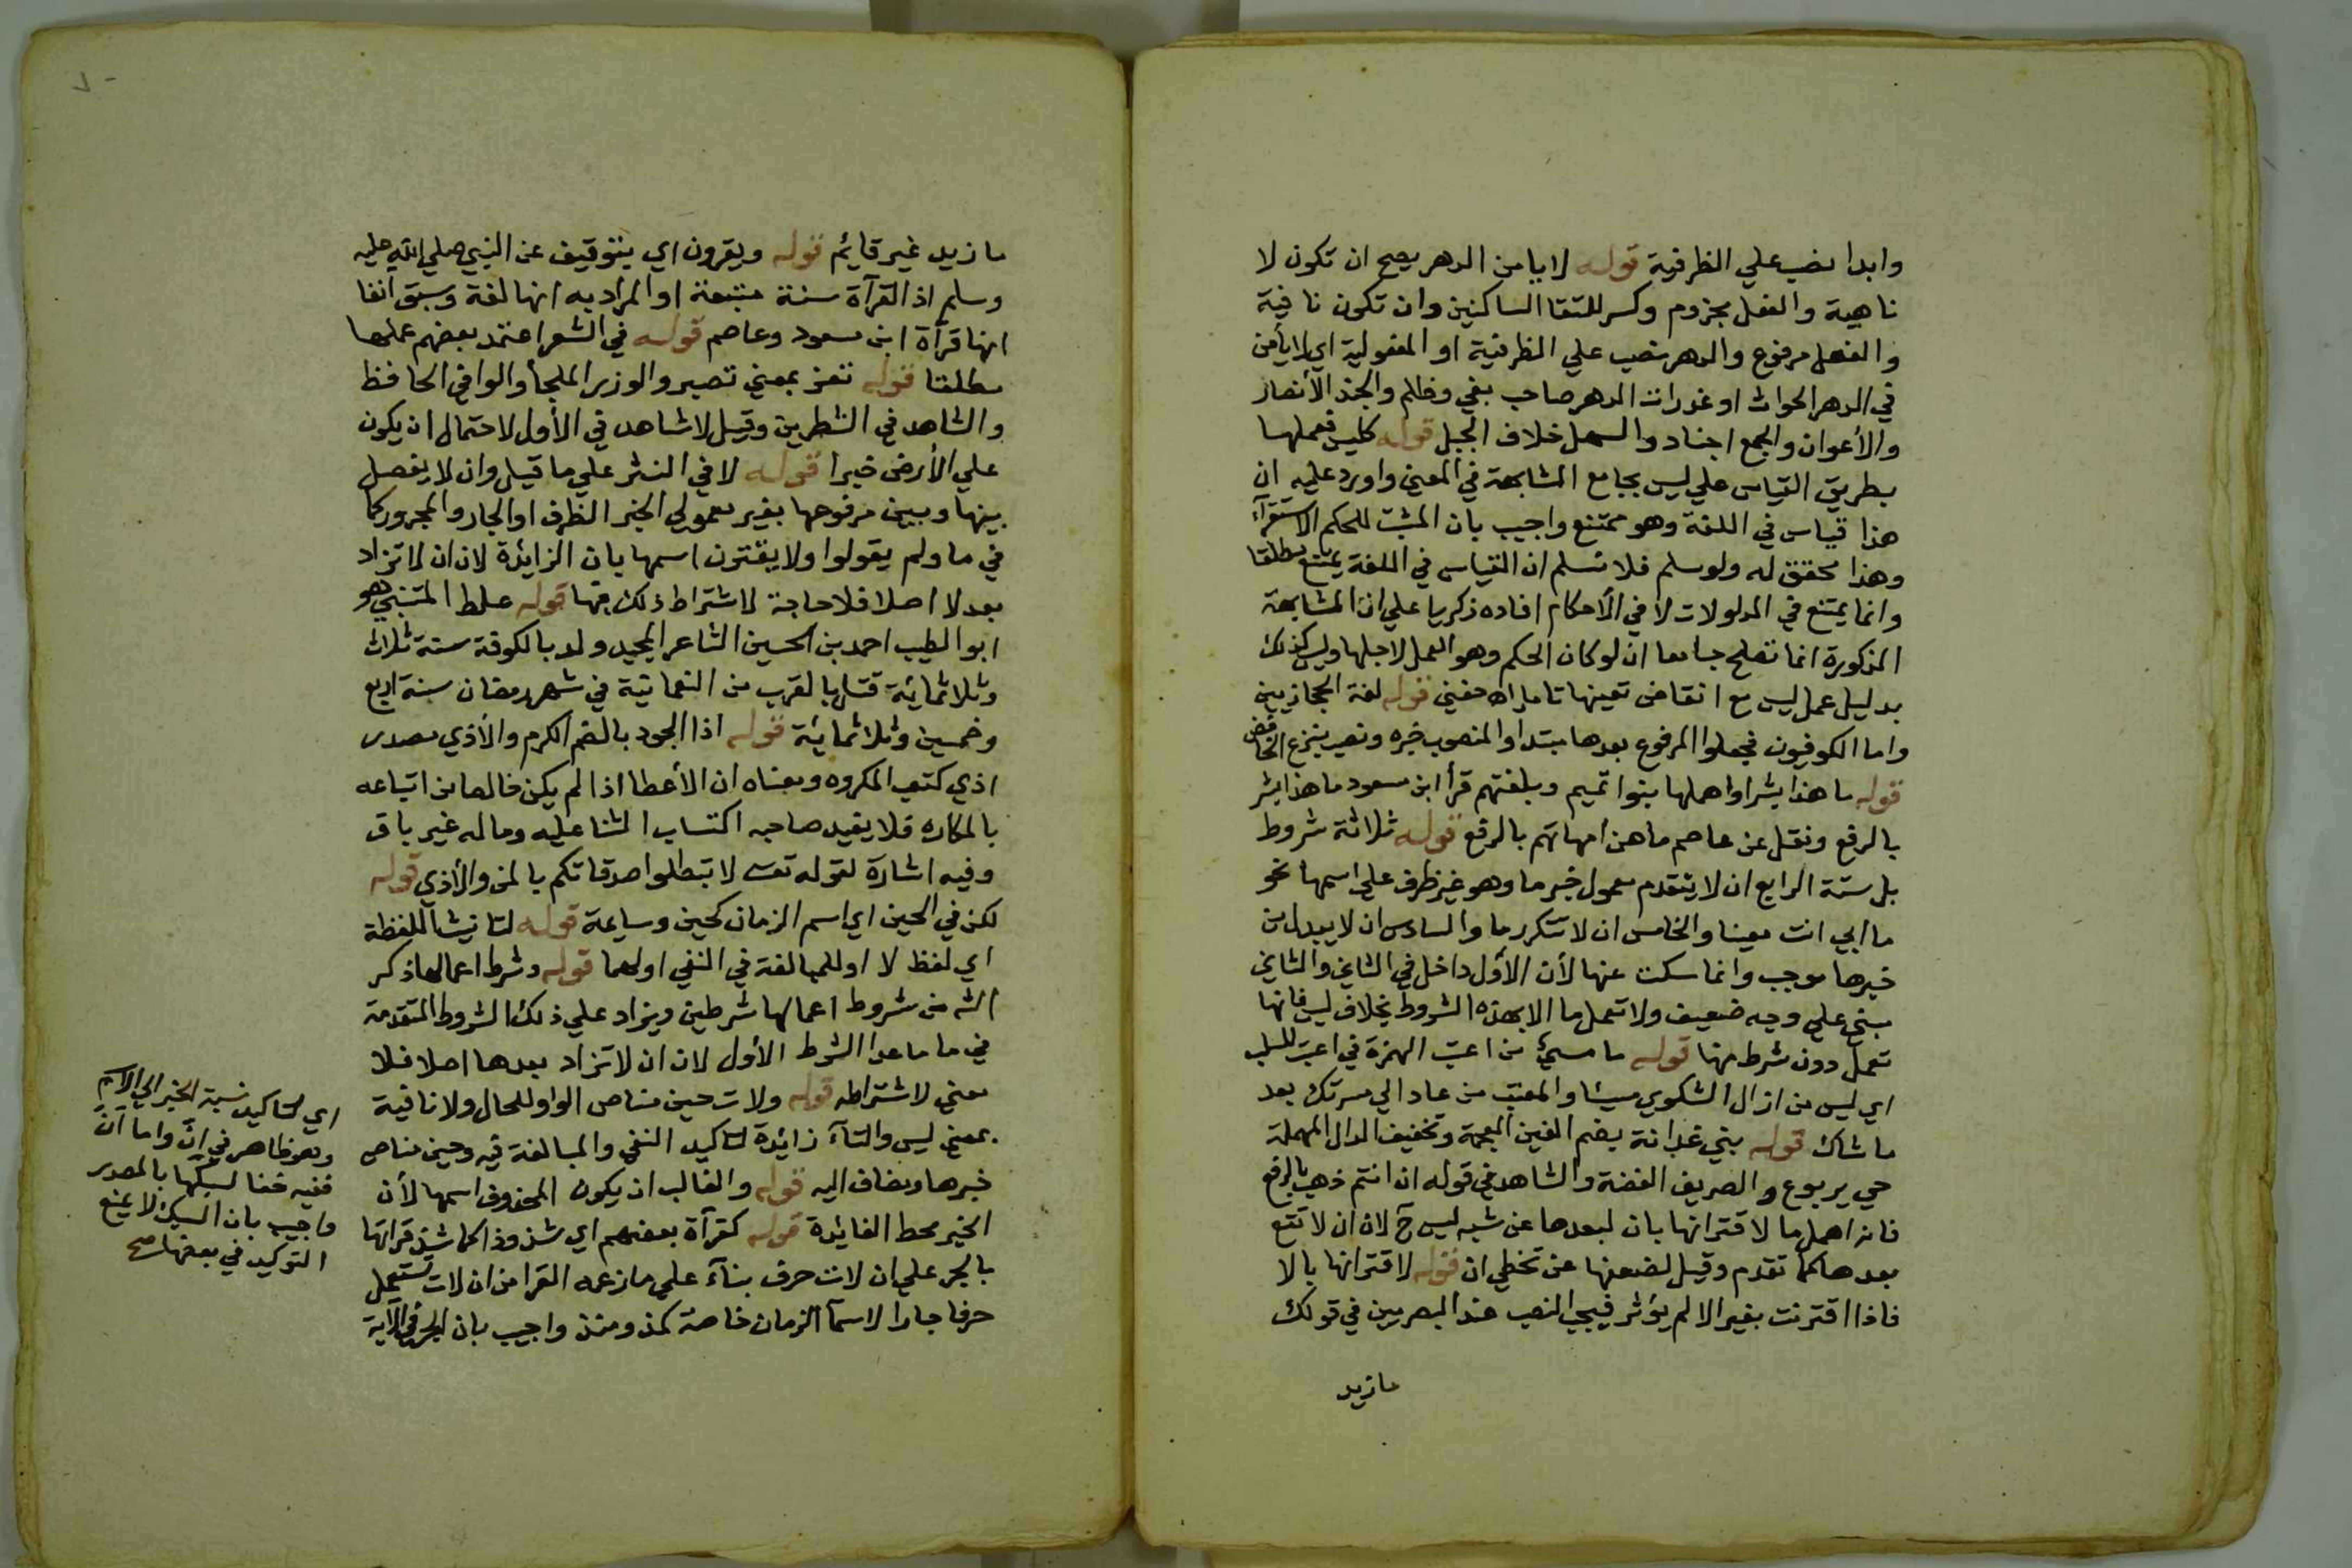 وابدا نصب علي الظرفية قوله لا يا من الدهر يصح ان تكون لا
ناهية والفعل مجزوم وكسر للتقا الساكنين وان تكون نافية
والفعل مرفوع والدهر نصب علي الظرفية او المفعولية اي لا يأمن
في الدهر الحواث او غدرات الدهر صاحب بغي وظلم والجند الأنصار
والأعوان والجمع اجناد والسهل خلاف الجبل قوله كليس فعملها
بطريق القياس علي ليس بجامع المشابهة في المعني واورد عليه ان
هذا قياس في اللغة وهو ممتنع واجيب بان المثبت للحكم الاستقرآء
وهذا محقق له ولو سلم فلا نسلم ان القياس في اللغة يمتنع مطلقا
وانما يمتنع في المدلولات لا في الأحكام افاده زكريا علي ان المشابهة
المذكورة انما تصلح جامعا ان لو كان الحكم وهو العمل لاجلها وليس كذلك
بدليل عمل ليس مع انتقاض نفيها تامل اه حفني قوله لغة الحجازيين
واما الكوفيون فجعلوا المرفوع بعدها مبتدا والمنصوب خبره ونصب بنزع الخافض
قوله ما هذا بشرا واهملها بنوا تميم وبلغتهم قرأ ابن مسعود ما هذا بشر
بالرفع ونقل عن عاصم ما هن أمهاتهم بالرفع قوله ثلاثة شروط
بل ستة الرابع ان لا يتقدم معمول خبر ما وهو غير ظرف علي اسمها نحو
ما ابي انت معينا والخامس ان لا تتكرر ما والسادس ان لا يبدل من
خبرها موجب وانما سكت عنها لأن الأول داخل في الثاني والثاني
مبني علي وجه ضعيف ولا تعمل ما الا بهذه الشروط بخلاف ليس فانها
تعمل دون شرط منها قوله ما مسيئ من اعتب الهمزة في اعتب للسلب
اي ليس من ازال الشكوي مسيئا والمعتب من عاد الي مسرتك بعد
ما شاك قوله بني غدانة بضم الغين المعجمة وتخفيف الدال المهملة
حي يربوع والصريف الفضة والشاهد في قوله ان انتم ذهب بالرفع
فانه اهمل ما لاقترانها بان لبعدها عن شبه ليس ح لان ان لا تقع
بعدها كما تقدم وقيل لضعفها عن تخطي ان قوله لاقترانها بالا
فاذا اقترنت بغير الا لم يؤثر فيجب النصب عند البصريين في قولك
ما زيد
ما زيد غير قايئم قوله ويقرون اي بتوقيف عن النبي صلي الله عليه
وسلم اذ القرآة سنة متبعة او المراد به انها لغة وسبق انفا
انها قرآة ابن مسعود وعاصم قوله في الشعر اعتمد بعضهم عملها
مطلقا قوله تعز بمعني تصبر والوزير الملجأ والواقي الحافظ
والشاهد في الشطرين وقيل لا شاهد في الأول لاحتمال ان يكون
علي الأرض خبرا قوله لا في النثر علي ما قيل وان لا يفصل
بينها وبين مرفوعها بغير معمولي الخبر الظرف او الجار والمجرور كما
في ما ولم يقولوا ولا يقترن اسمها بان الزايئدة لان ان لا تزاد
بعد لا اصلا فلا حاجة لاشتراط ذلك فيها قوله غلط المتنبي هو
ابو الطيب احمد بن الحسين الشاعر المجيد ولد بالكوفة سنة ثلاث
وثلاثمائة قتل بالقرب من النعمانية في شهر رمضان سنة اربع
وخمسين وثلاثمائة قوله اذا الجود بالضم الكرم والأذي مصدر
اذي كتعب المكروه ومعناه ان الأعطا اذا لم يكن خالصا من اتباعه
بالمكاره فلا يفيد صاحبه اكتساب الثنا عليه وماله غير باق
وفيه اشارة لقوله تعـ لا تبطلوا صدقاتكم بالمن والأذي قوله
لكن في الحين اي اسم الزمان كحين وساعة قوله لتانيث اللفظة
اي لفظ لا او للمبالغة في النفي اولهما قوله وشرط اعمالها ذكر
الشـ من شروط اعمالها شرطين ويزاد علي ذلك الشروط المتقدمة
في ما ما عدا الشرط الأول لان ان لا تزاد بعدها اصلا فلا
معني لاشتراطه قوله ولات حين مناص الواو للحال ولا نافية
بمعني ليس والتآء زائدة لتاكيد النفي والمبالغة فيه وحين مناص
خبرها ومضاف اليه قوله والغالب ان يكون المحذوف اسمها لأن
الخبر محط الفايئدة قوله كقرآة بعضهم اي شذوذا كما شذ قراتها
بالجر علي ان لات حرف بنآء علي ما زعمه الفرا من ان لات تستعمل
حرفا جارا لاسمآ الزمان خاصة كمذ ومنذ واجيب بان الجر في الآية
اي لتاكيد نسبة الخبر الي الاسم
وهو ظاهر في انّ واما أنّ
ففيه خفا لسبكها بالمصدر
واجيب بان السبك لا يمنع
التوكيد في بعضها صح